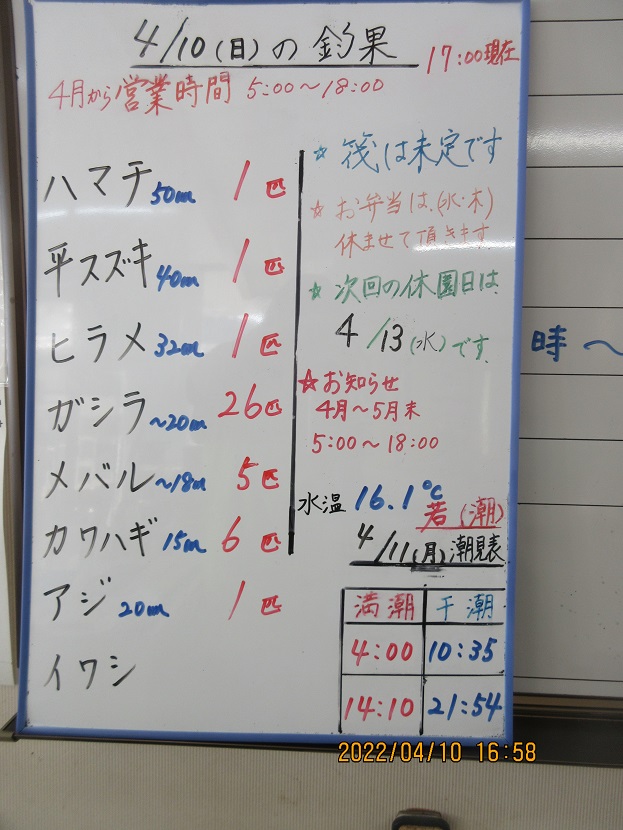 4/10(日)の釣果
17:00現在
4月から営業時間 5:00〜18:00
ハマチ50cm 1匹
平スズキ40cm 1匹
ヒラメ32cm 1匹
ガシラ〜20cm 26匹
メバル〜18cm 5匹
カワハギ15cm 6匹
アジ20cm 1匹
イワシ
☆ 筏は未定です
☆ お弁当は、(水・木)
休ませて頂きます
☆ 次回の休園日は、
4/13(水)です。
☆お知らせ
4月〜5月末
5:00〜18:00
水温 16.1℃
若(潮)
4/11(月)潮見表
満潮 干潮
4:00 10:35
14:10 21:54
時〜
2022/04/10 16:58